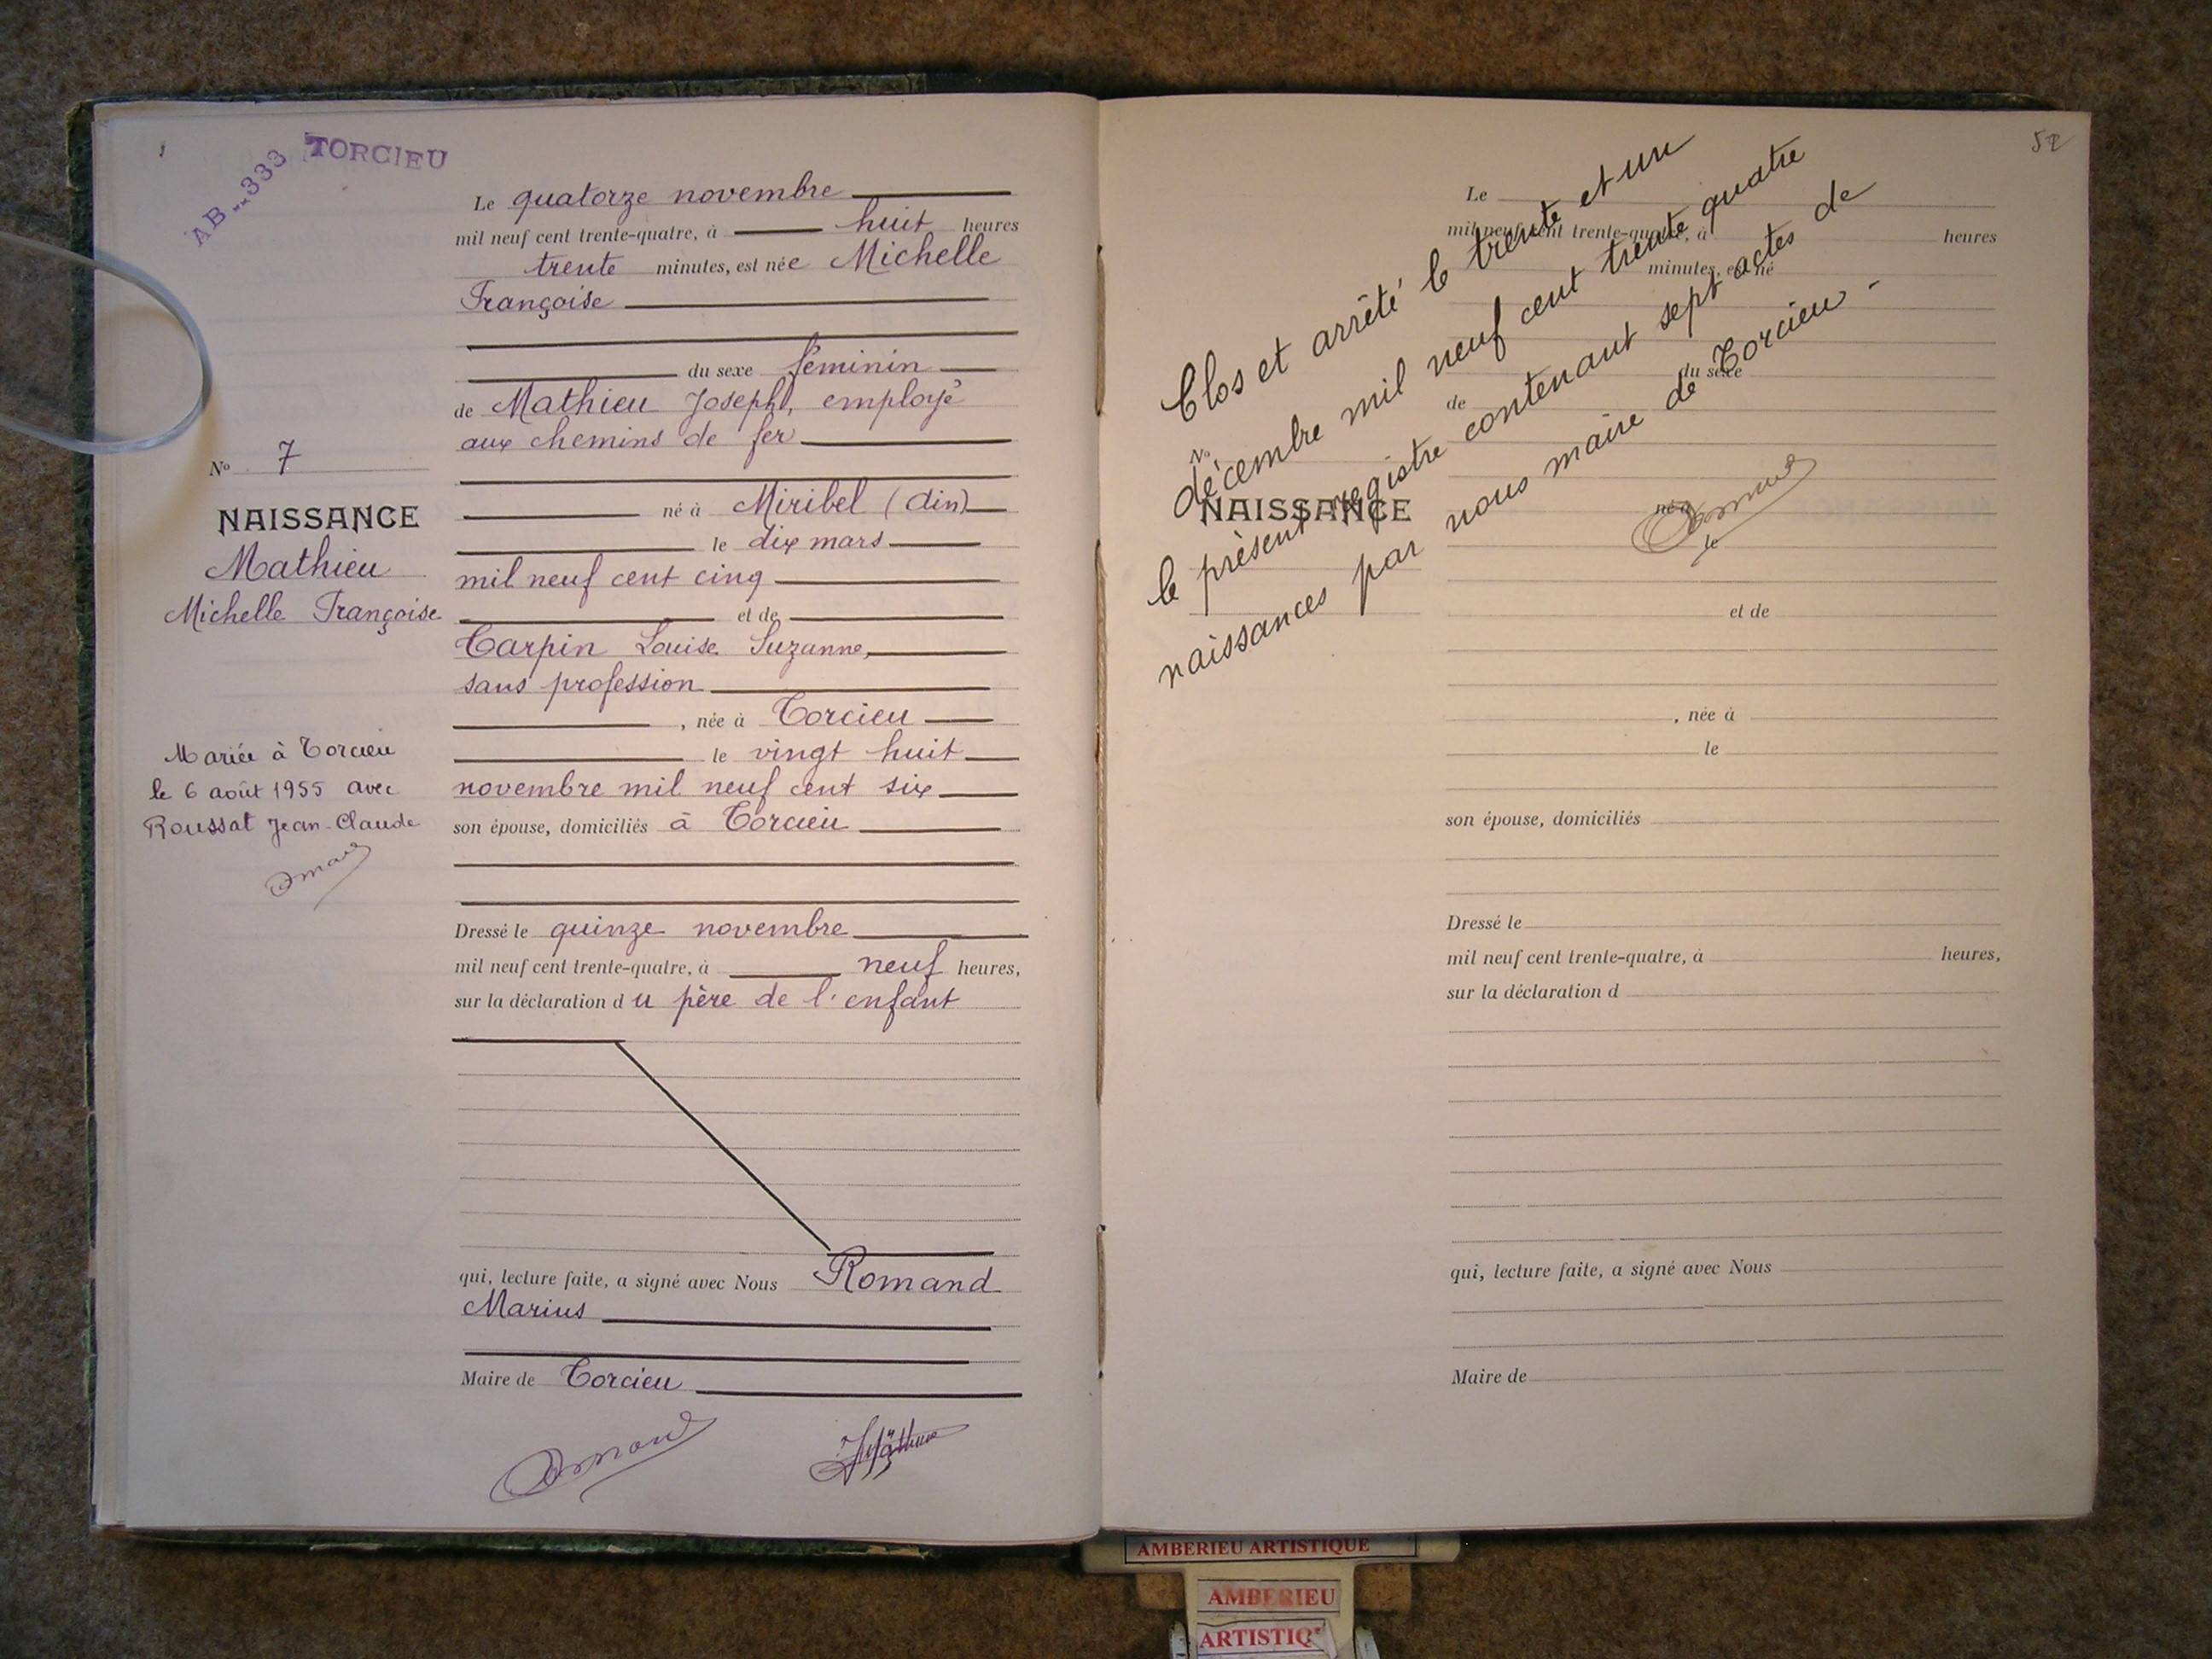 AB..333 TORCIEU
Le quatorze novembre
mil neuf cent trente-quatre, à huit heures
trente minutes, est née Michelle
Françoise
du sexe féminin
de Mathieu Joseph, employé
aux chemins de fer
No 7
NAISSANCE
Mathieu
Michelle Françoise
né à Miribel (Ain)
le dix mars
mil neuf cent cinq
et de
Carpin Louise Suzanne,
sans profession
, née à Torcieu
le vingt huit
novembre mil neuf cent six
son épouse, domiciliés à Torcieu
Mariée à Torcieu
le 6 août 1955 avec
Roussat Jean-Claude
Dressé le quinze novembre
mil neuf cent trente-quatre, à neuf heures,
sur la déclaration du père de l'enfant
qui, lecture faite, a signé avec Nous Romand
Marius
Maire de Torcieu
52
Clos et arrêté le trente et un
décembre mil neuf cent trente quatre
le présent registre contenant sept actes de
naissances par nous maire de Torcieu.
Le
mil neuf cent trente-quatre, à heures
minutes, est né
du sexe
de
No
NAISSANCE
né à
le
et de
, née à
le
son épouse, domiciliés
Dressé le
mil neuf cent trente-quatre, à heures,
sur la déclaration d
qui, lecture faite, a signé avec Nous
Maire de
AMBERIEU ARTISTIQUE
AMBERIEU
ARTISTIQ